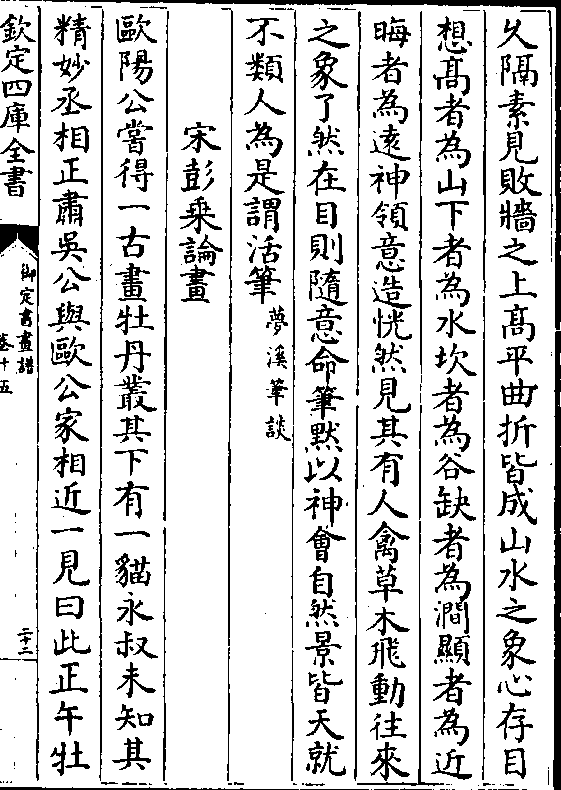 乆隔素見敗牆之上髙平曲折皆成山水之象心存目
想髙者為山下者為水坎者為谷缺者為澗顯者為近
晦者為逺神領意造恍然見其有人禽草木飛動往來
之象了然在目則隨意命筆黙以神會自然景皆天就
不類人為是謂活筆夢溪筆談
宋彭乗論畫
歐陽公嘗得一古畫牡丹叢其下有一貓永叔未知其
精妙丞相正肅吳公與歐公家相近一見曰此正午牡
欽定四庫全書
御定書畫譜
卷十五
二十二